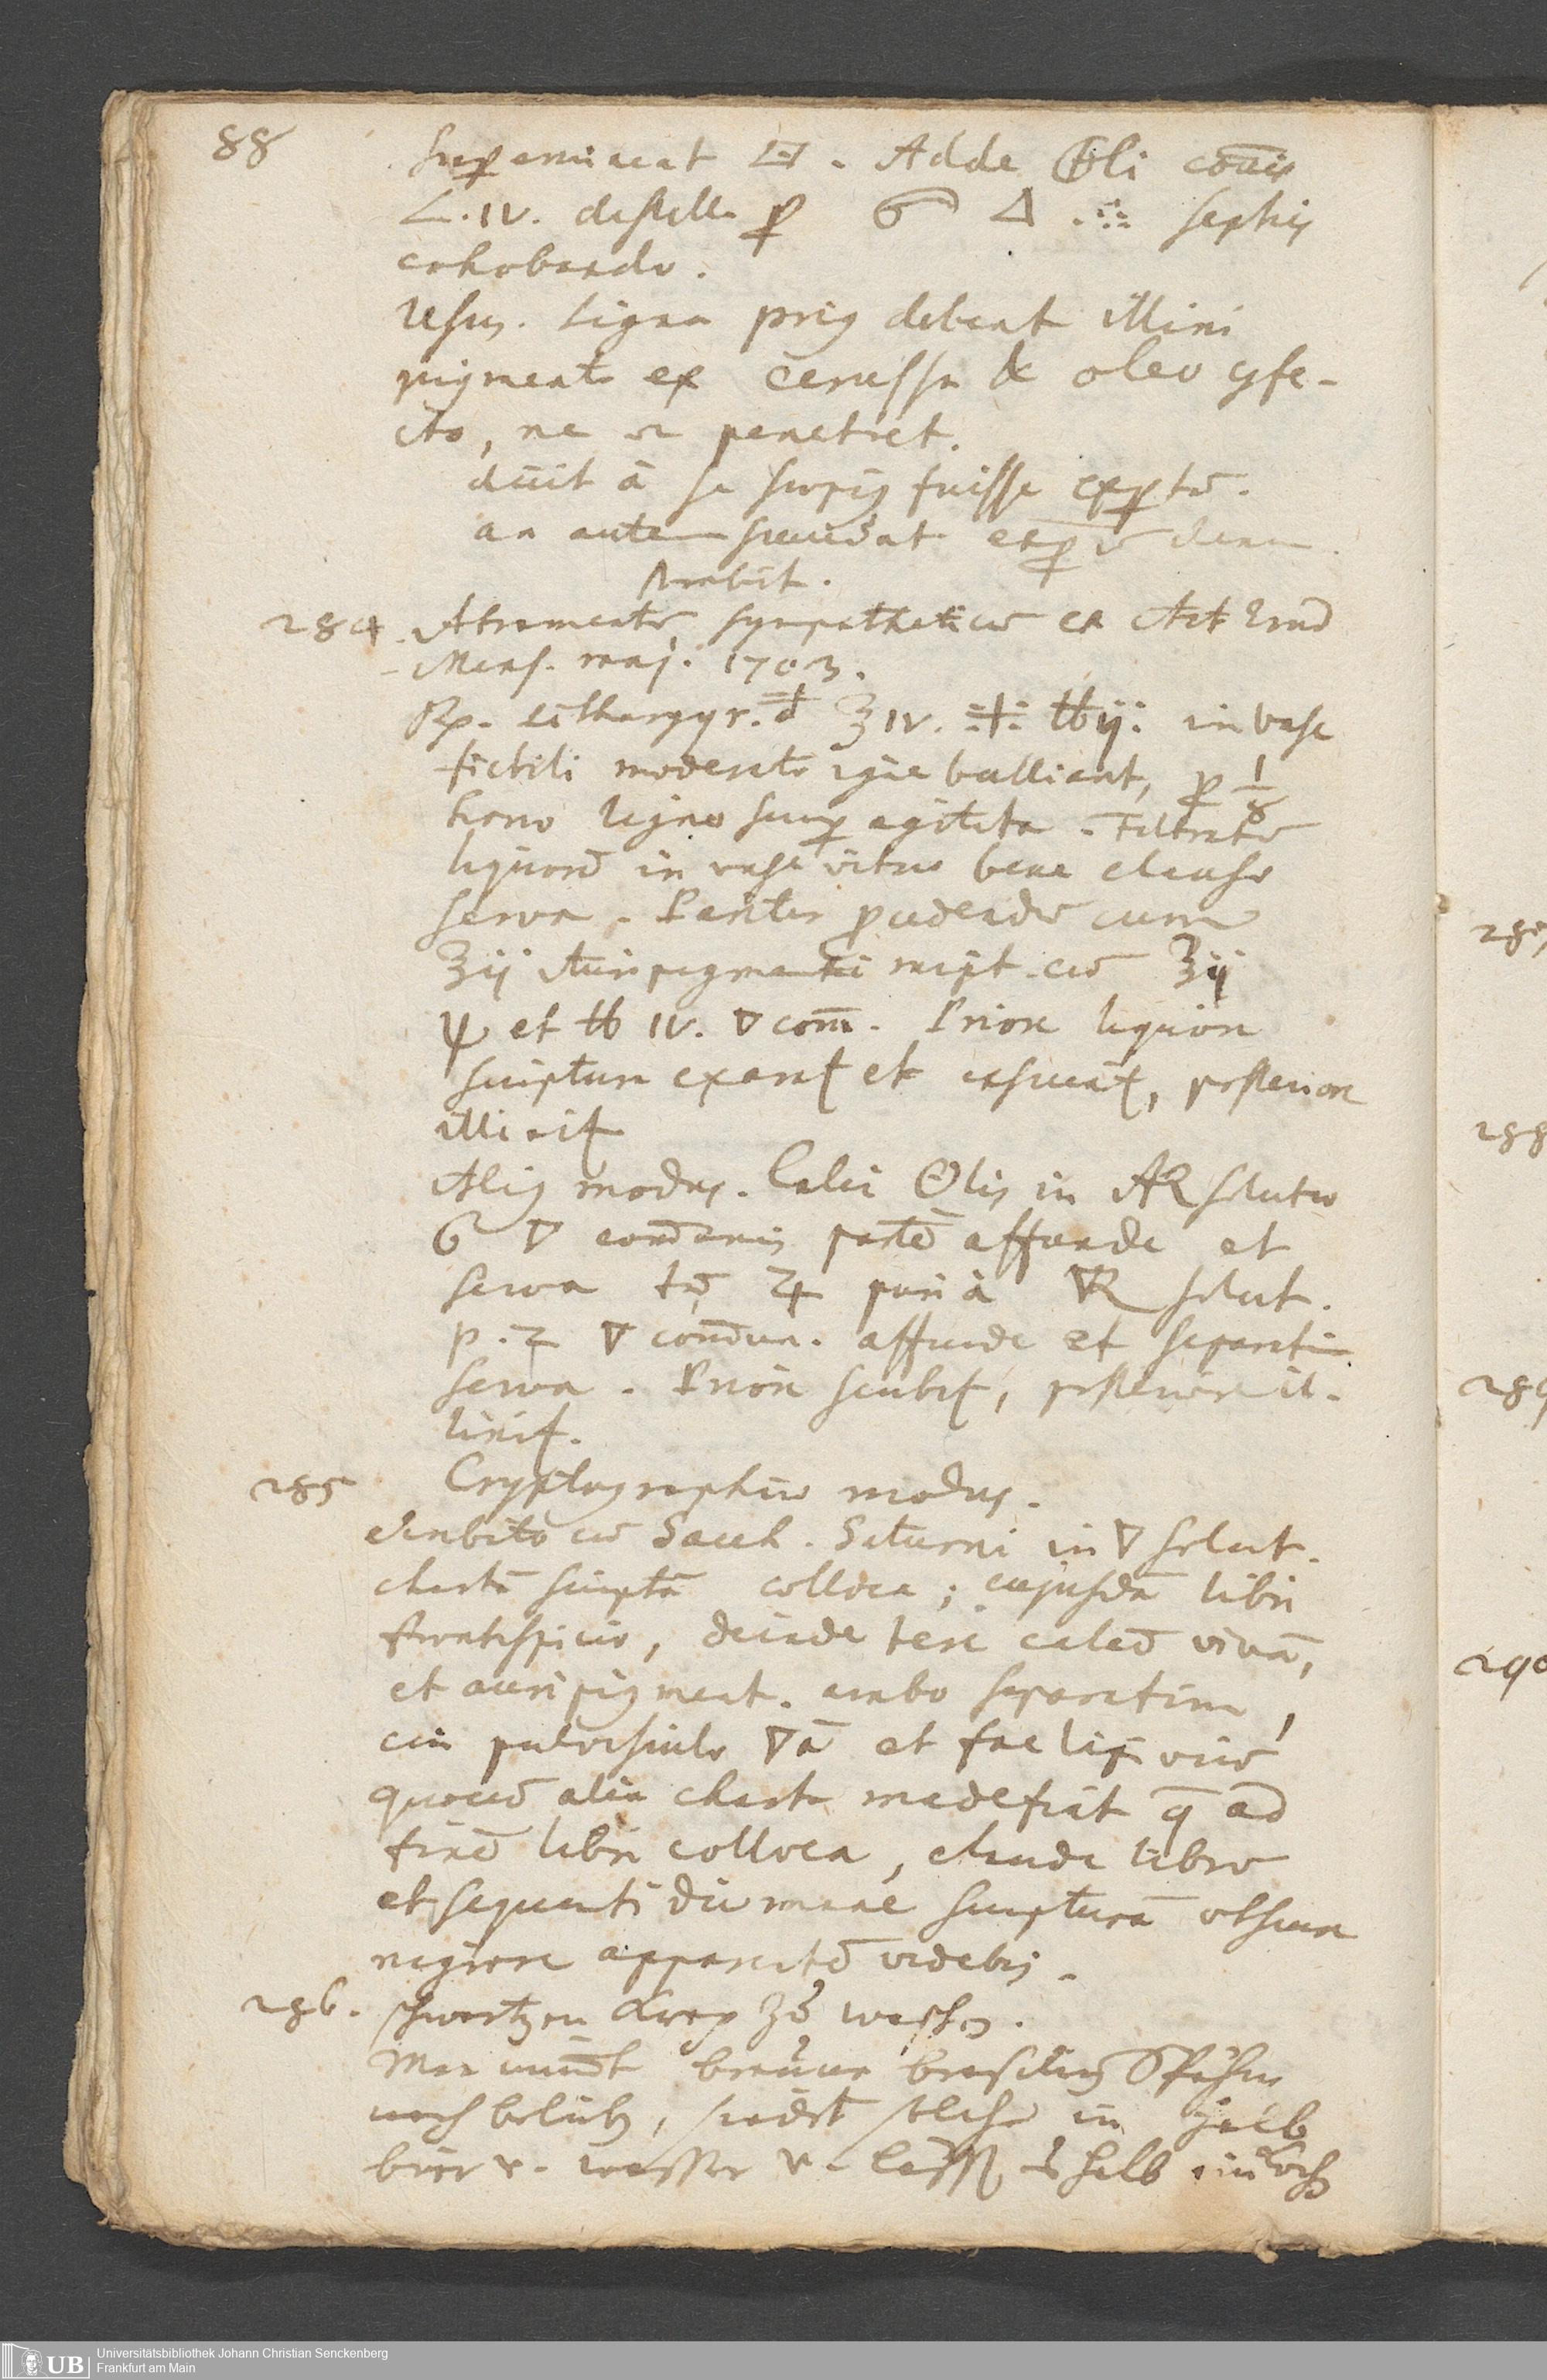 88
superemineat. Adde li cõuis
L. IV. destill. p septies
cohobando.
Usus. Ligna prius debent illini
pigmento ex cerussa & oleo cfe-
cto, ne penetret.
dicit à se sæpius fuisse exptũ.
an autem succedat
probabit.
284. Atramentũ sympatheticũ ex Act Erud
Mens. maj. 1703.
Rp. Lithargyr. ʒ IV. ℔ ij. in vase
fictili moderato igne bulliant, p 1/8
horæ ligno semp agitata. Filtratũ
liquorẽ in vase vitreo bene clauso
serva. Pariter pcedendũ cum
ʒij Auripigmenti mixt. cũ ʒij
et ℔ IV. ▽ com̃. Priore liquore
scriptura exarat et exsiccat, posteriore
illinit
Alius modus. Calci ☉lis in AR solutæ
6 ▽ com̃unis partẽ affunde et
serva tũ ♃ puri à ▽R solut.
p. 2 ▽ com̃un. affunde et separatim
serva. Priore scribit, posteriore il-
linit.
285 Cryptographicus modus.
Ambito cũ Sacch. Saturni in ▽ solut.
chartã scriptã colloca; cujusdã libri
frontispicio, deinde tere calcẽ vivã,
et auripigment. ambo separatim,
cui pulvisculo ▽ã et fac lixiviũ
quocũ alia charta madefiat q̃ ad
finẽ libri colloca, claude librũ
et sequenti die mane scripturã obscura
nigrore apparentẽ videbis.
286. schwartzen zu waschen.
Man nimbt braune brasilien Spähne
nach belieb, siedet solche in halb
bier v. wasser v. lässt es halb einkoch
287
288
289
290
UB Universitätsbibliothek Johann Christian Senckenberg
Frankfurt am Main